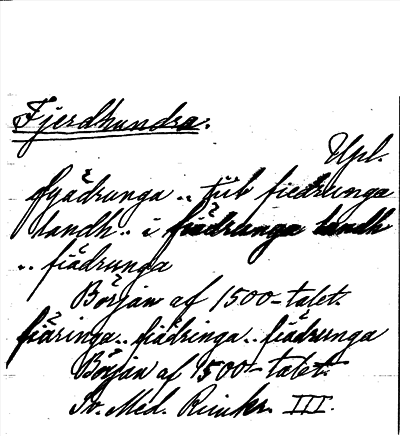 Fjerdhundra.
Upl.
fyädrunga .. tiib fiedrunga
landh .. i fiädrunga landh
.. fiädrunga
Början af 1500-talet.
fiäringa .. fiädringa .. fiädrunga
Början af 1500-talet.
Sv. Med. Rimkr. III.